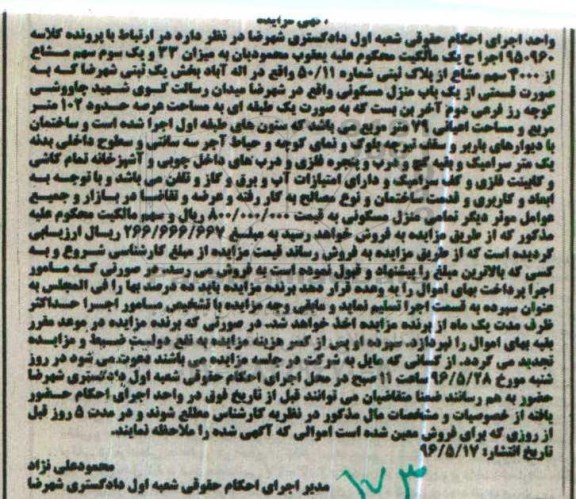 آگهی مزایده
واحد اجرای احکام حقوقی شعبه اول دادگستری شهرضا در نظر دارد در ارتباط با پرونده کلاسه
۹۵۰۹۶۰ اجرا ح یک مالکیت محکوم علیه یعقوب محمودیان به میزان ۳۳ و یک سوم سهم مشاع
از ۴۰۰۰ سهم مشاع از پلاک ثبتی شماره ۵۰/۱۱ واقع در اله آباد بخش یک ثبتی شهرضا که به
صورت قسمتی از یک باب منزل مسکونی واقع در شهرضا میدان رسالت کوی شهید چاووشی
کوچه رز فرعی دوم آخر بن است که به صورت یک طبقه ای به مساحت عرصه حدود ۱۰۲ متر
مربع و مساحت اعیانی ۷۹ متر مربع می باشد که ستون های طبقه اول اجرا شده است و ساختمان
با دیوارهای باربر و سقف تیرچه بلوک و نمای کوچه و حیاط آجر سه سانتی و سطوح داخلی بدنه
یک متر سرامیک و بقیه گچ و درب و پنجره فلزی و درب های داخل چوبی و آشپزخانه تمام کاشی
و کابینت فلزی و کف سرامیک و دارای امتیازات آب و برق و گاز و تلفن می باشد و با توجه به
ابعاد و کاربری و قدمت ساختمان و نوع مصالح به کار رفته و عرضه و تقاضا در بازار و جمیع
عوامل موثر دیگر تمامی منزل مسکونی به قیمت ۸۰۰/۰۰۰/۰۰۰ ریال و سهم مالکیت محکوم علیه
مذکور که از طریق مزایده به فروش خواهد رسید به مبلغ ۲۶۶/۶۶۶/۶۶۷ ریال ارزیابی
گردیده است که از طریق مزایده به فروش رساند قیمت مزایده از مبلغ کارشناسی شروع و به
کسی که بالاترین مبلغ را پیشنهاد و قبول نموده است به فروش می رسد. در صورتی که مامور
اجرا پرداخت بهای اموال را به وعده قرار دهد برنده مزایده باید ده درصد بها را فی المجلس به
عنوان سپرده به قسمت اجرا تسلیم نماید و مابقی وجه مزایده با تشخیص مامور اجرا حداکثر
ظرف مدت یک ماه از برنده مزایده اخذ خواهد شد. در صورتی که برنده مزایده در موعد مقرر
بقیه بهای اموال را نپردازد. سپرده او پس از کسر هزینه مزایده به نفع دولت ضبط و مزایده
تجدید می گردد. از کسانی که مایل به شرکت در جلسه مزایده می باشند دعوت می شود در روز
شنبه مورخ ۹۶/۵/۲۸ ساعت ۱۱ صبح در محل اجرای احکام حقوقی شعبه اول دادگستری شهرضا
حضور به هم رسانند ضمنا متقاضیان می توانند قبل از تاریخ فوق در واحد اجرای احکام حضور
یافته از خصوصیات و مشخصات مال مذکور در نظریه کارشناسی مطلع شوند و در مدت ۵ روز قبل
از روزی که برای فروش معین شده است اموالی که آگهی شده را ملاحظه نمایند.
تاریخ انتشار: ۹۶/۵/۱۷
محمودعلی نژاد
مدیر اجرای احکام حقوقی شعبه اول دادگستری شهرضا